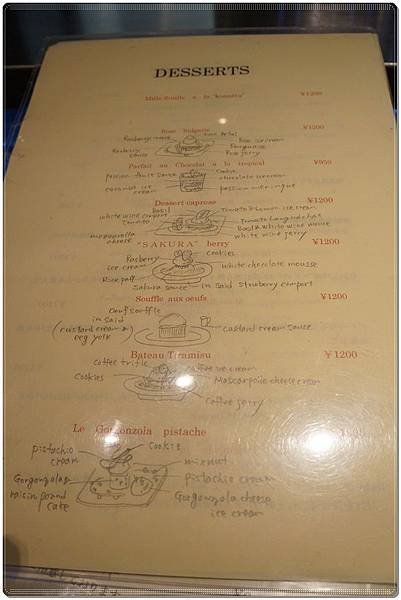 DESSERTS
Mille-feuille a la "konatta" ¥1200
Rose Bulgarie ¥1200
Rose Petal
Rasberry sauce
Rose ice cream
Rose jerry
Parfait au Chocolat a la tropical ¥950
passion fruit sauce
chocolate icecream
coconut ice cream
passion meringue
Dessert caprese ¥1200
Basil
Tomato ice cream
white wine comport tomato
Tomato Langue de chat
Basil & White wine mousse
mozzarella cheese
white wine jerry
"SAKURA" berry ¥1200
Rasberry ice cream
cookies
white chocolate mousse
Rice puff
Sakura sauce
in Said Straberry comport
Souffle aux oeufs ¥1200
Oeuf souffle
in said
(custard cream & egg yolk)
custard cream sauce
Bateau Tiramisu ¥1200
Coffee trifle
Coffee ice cream
Cookies
Mascarpone cheese cream
Coffee jerry
Le Gorgonzola pistache
pistachio cream
cookie
mixnut
Gorgonzola & raisin pound cake
pistachio cream
Gorgonzola cheese ice cream